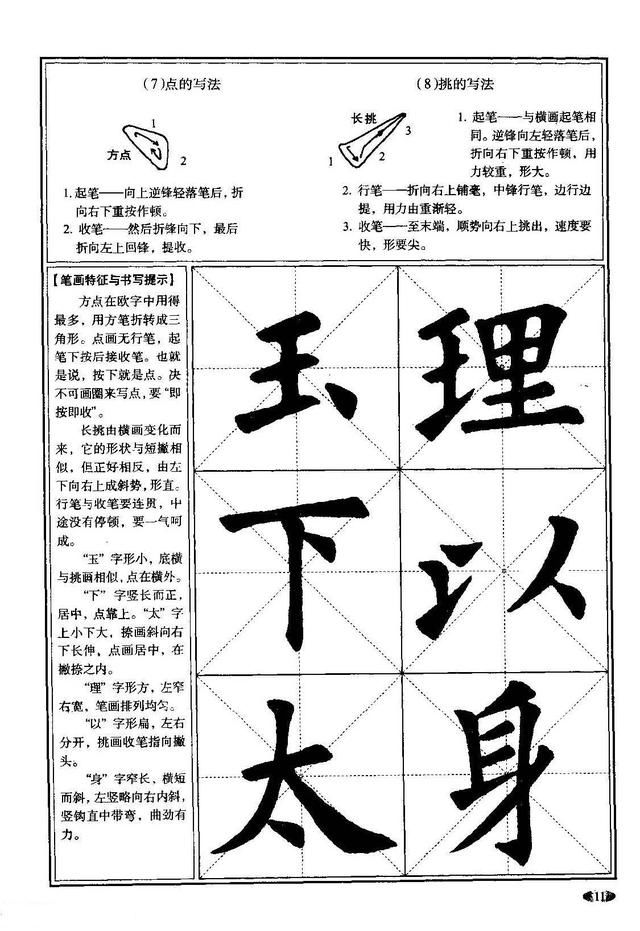 (7)点的写法
1
方点
2
1.起笔——向上逆锋轻落笔后，折
向右下重按作顿。
2. 收笔——然后折锋向下，最后
折向左上回锋，提收。
(8)挑的写法
长挑
3
1
2
1. 起笔——与横画起笔相
同。逆锋向左轻落笔后，
折向右下重按作顿，用
力较重，形大。
2. 行笔——折向右上铺毫，中锋行笔，边行边
提，用力由重渐轻。
3. 收笔——至末端，顺势向右上挑出，速度要
快，形要尖。
【笔画特征与书写提示】
方点在欧字中用得
最多，用方笔折转成三
角形。点画无行笔，起
笔下按后接收笔。也就
是说，按下就是点。决
不可画圈来写点，要“即
按即收”。
长挑由横画变化而
来，它的形状与短撇相
似，但正好相反，由左
下向右上成斜势，形直。
行笔与收笔要连贯，中
途没有停顿，要一气呵
成。
“玉”字形小，底横
与挑画相似，点在横外。
“下”字竖长而正，
居中，点靠上。“太”字
上小下大，捺画斜向右
下长伸，点画居中，在
撇捺之内。
“理”字形方，左窄
右宽，笔画排列均匀。
“以”字形扁，左右
分开，挑画收笔指向撇
头。
“身”字窄长，横短
而斜，左竖略向右内斜，
竖钩直中带弯，曲劲有
力。
玉理
下以
太身
11